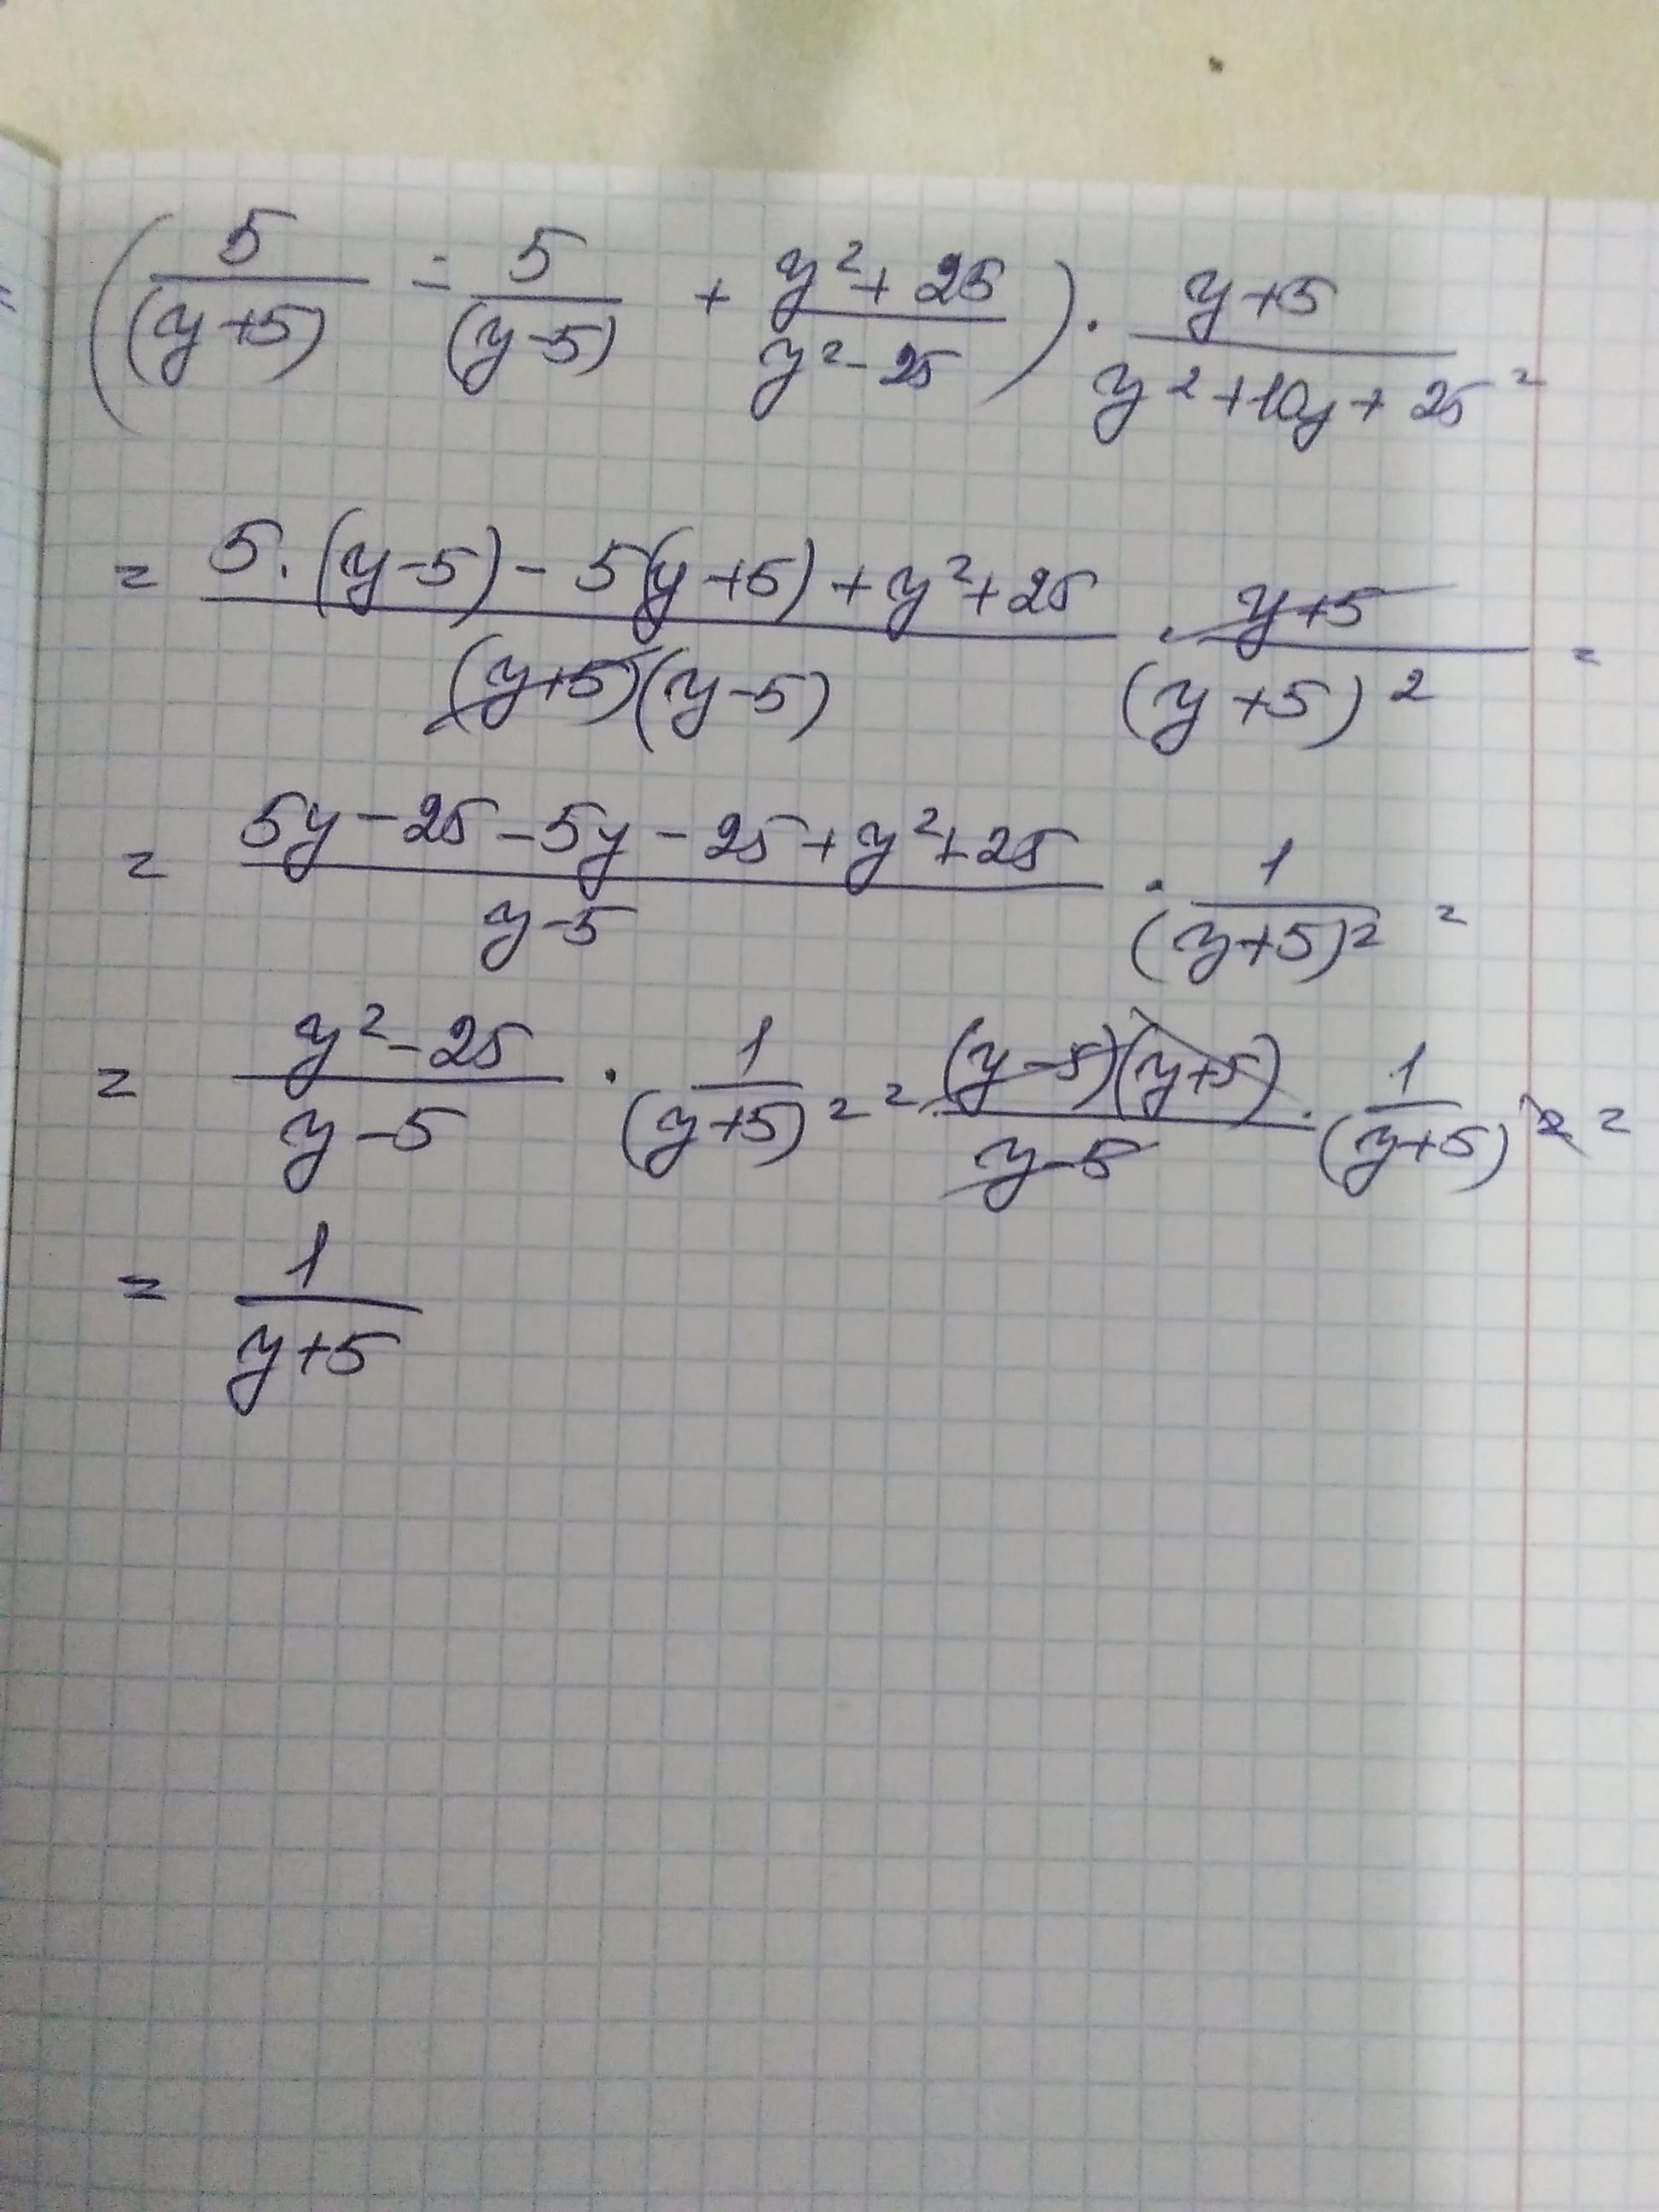 = ( 5/(y+5) - 5/(y-5) + (y²+25)/(y²-25) ) · (y+5)/(y²+10y+25) =
= (5·(y-5) - 5(y+5) + y²+25)/((y+5)(y-5)) · (y+5)/(y+5)² =
= (5y-25-5y-25+y²+25)/(y-5) · 1/(y+5)² =
= (y²-25)/(y-5) · 1/(y+5)² = ((y-5)(y+5))/(y-5) · 1/(y+5)² =
= 1/(y+5)